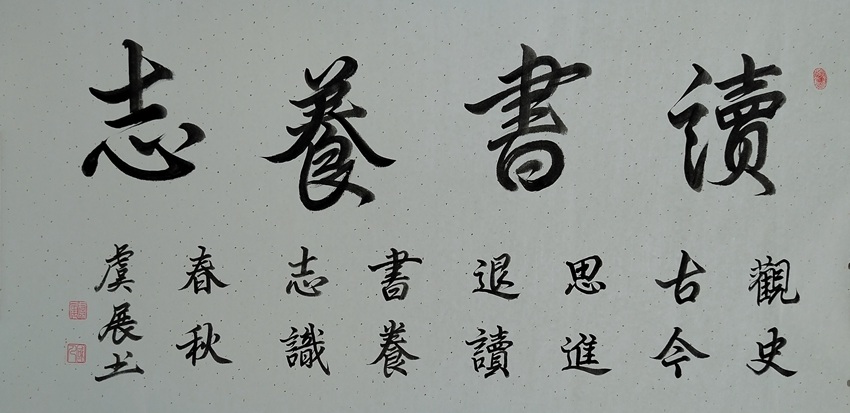 讀書養志
觀史
古今
思進
退讀
書養
志識
春秋
虞展书